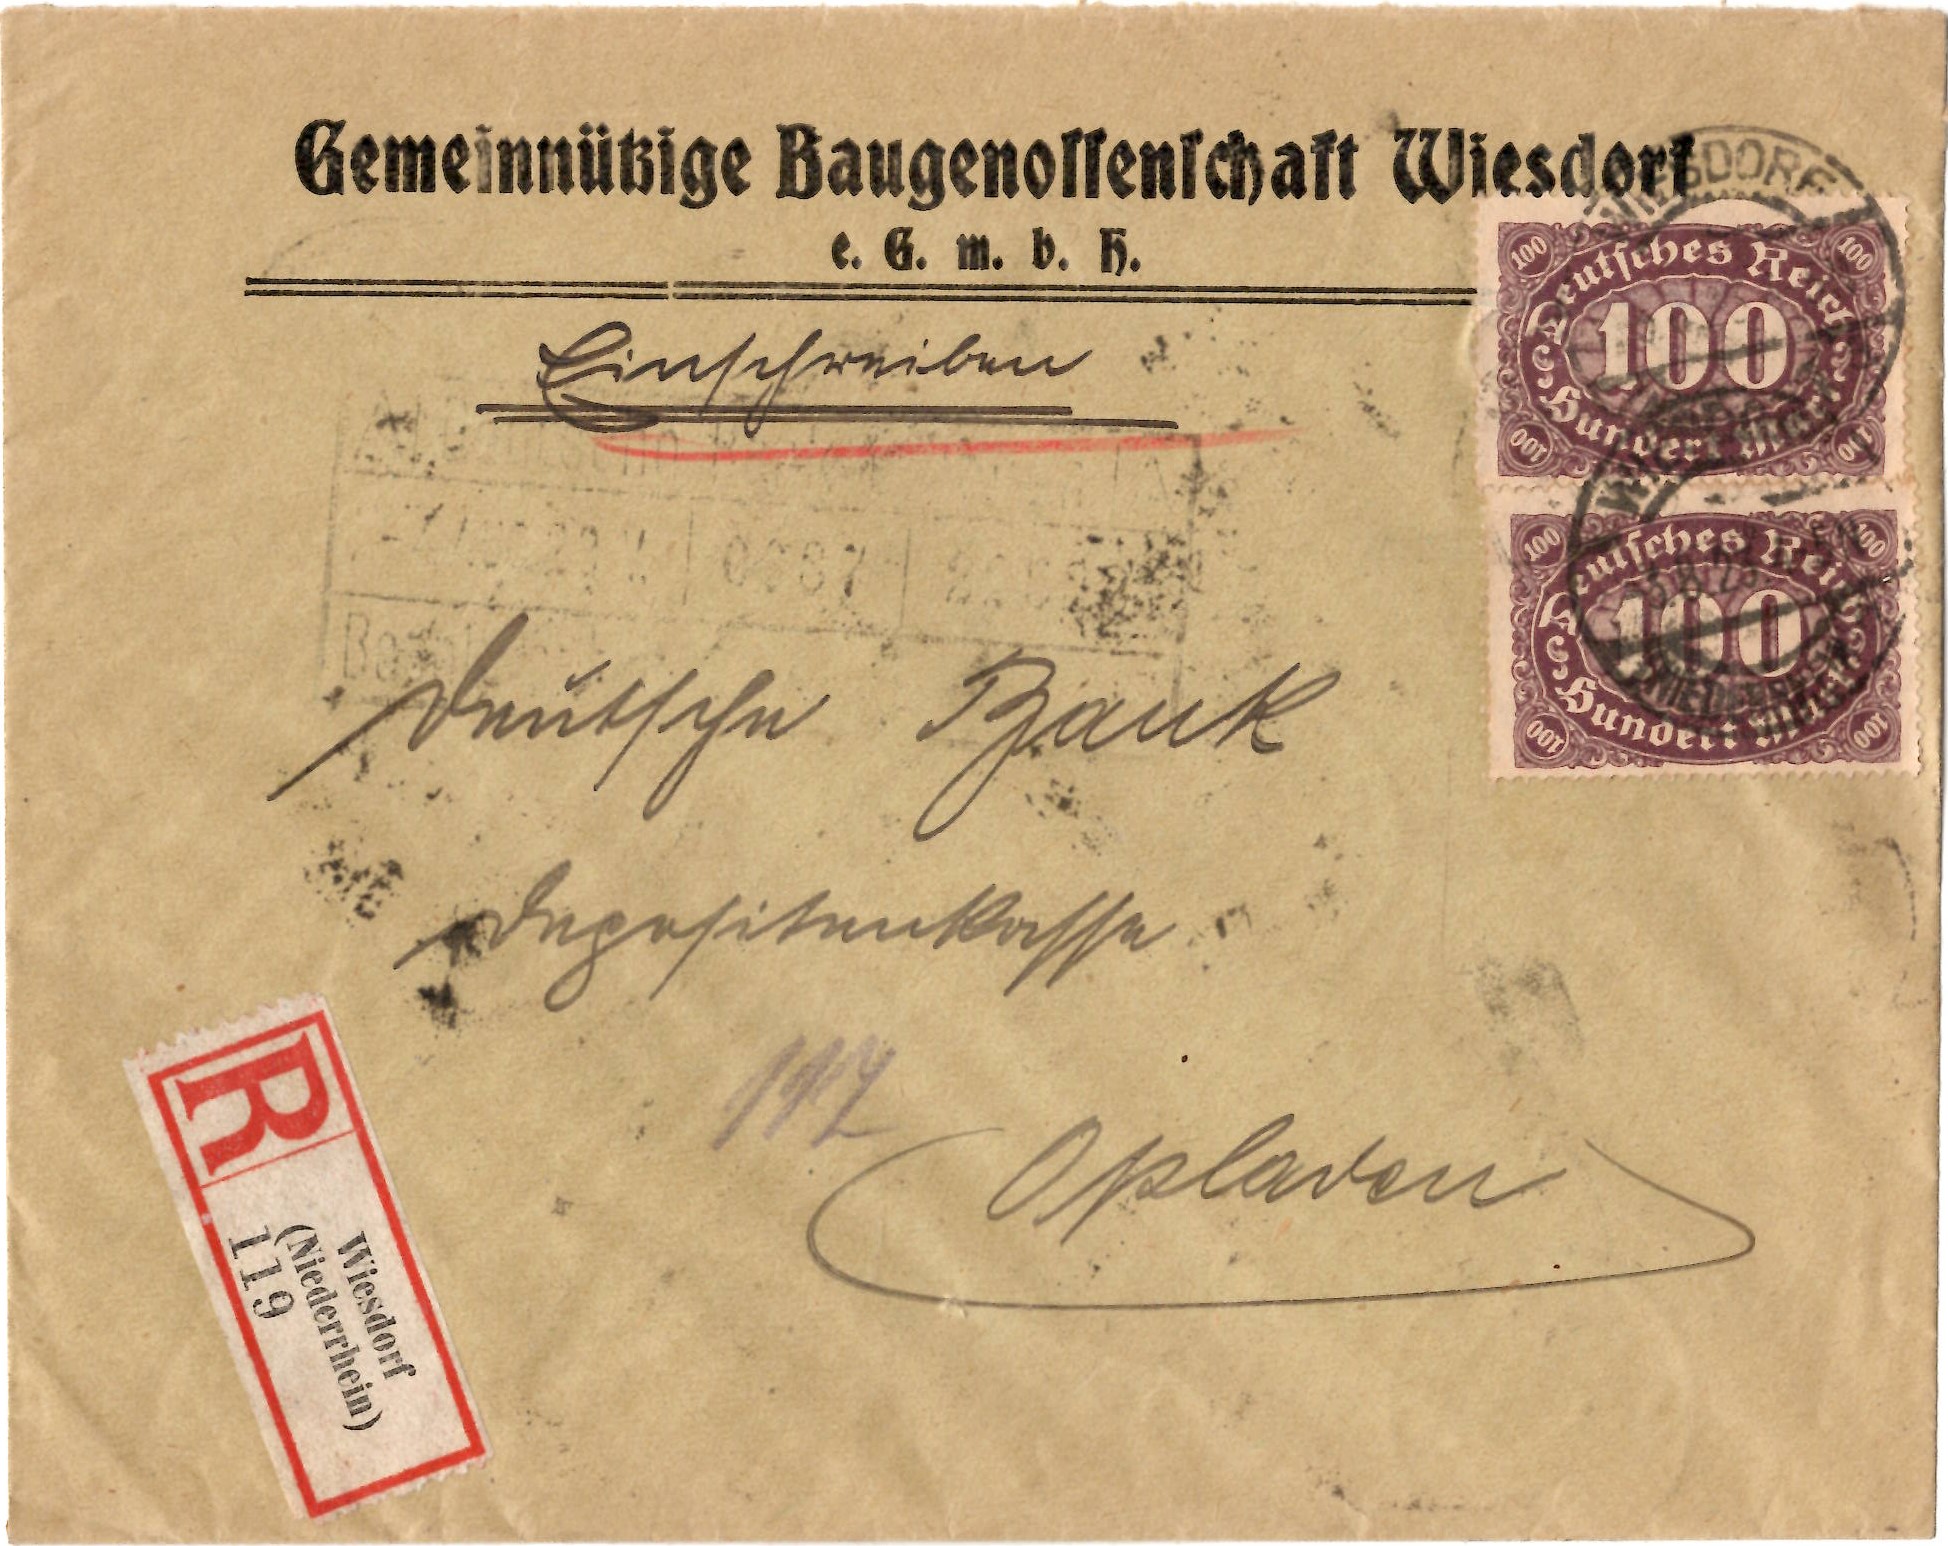 Gemeinnützige Baugenossenschaft Wiesdorf
e. G. m. b. H.
Einschreiben
WIESDORF
100 Deutsches Reich 100
100
100 Hundert Mark 100
100 Deutsches Reich 100
100
100 Hundert Mark 100
Deutsche Bank
Depositenkasse
Opladen
R
Wiesdorf
(Niederrhein)
119